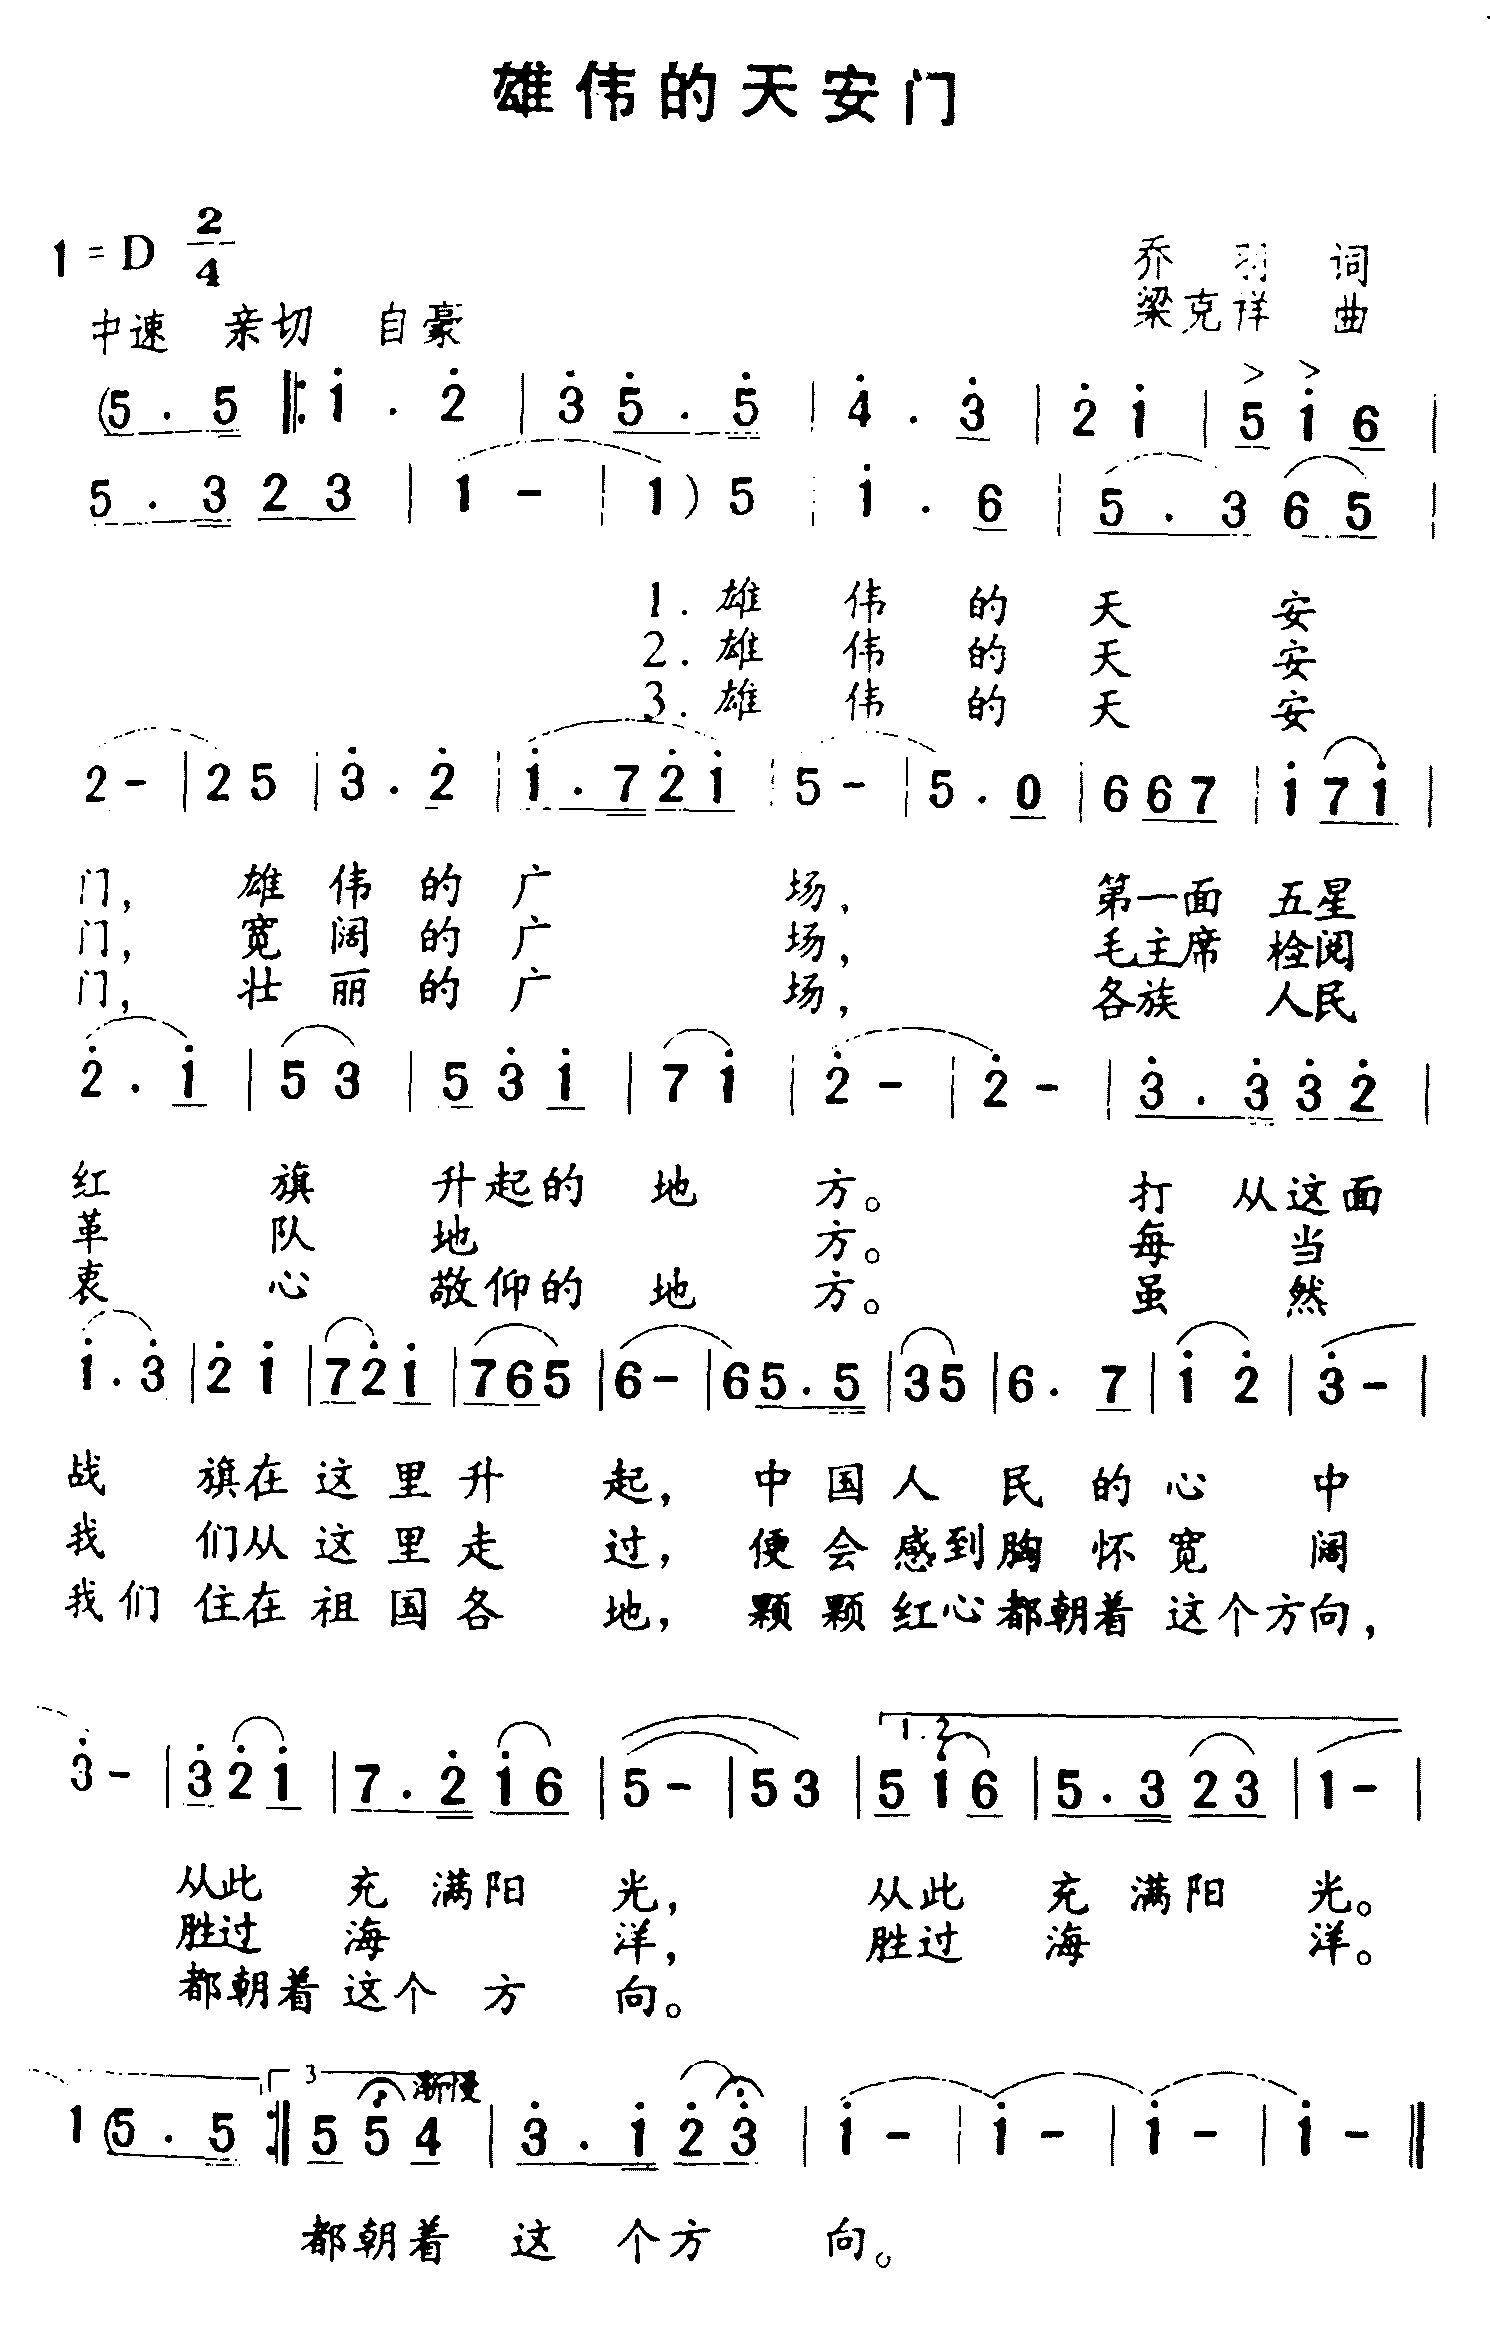 雄伟的天安门
1=D 2/4
乔 羽 词
中速 亲切 自豪
梁克祥 曲
(5 . 5 ‖: 1̇ . 2̇ | 3̇ 5̇ . 5̇ | 4̇ . 3̇ | 2̇ 1̇ | 5 1̇ 6 |
5 . 3 2 3 | 1 - | 1 ) 5 | 1̇ . 6 | 5 . 3 6 5 |
1. 雄 伟 的 天 安
2. 雄 伟 的 天 安
3. 雄 伟 的 天 安
2 - | 2 5 | 3̇ . 2̇ | 1̇ . 7 2̇ 1̇ | 5 - | 5 . 0 | 6 6 7 | 1̇ 7 1̇ |
门, 雄 伟 的 广 场, 第一面 五星
门, 宽 阔 的 广 场, 毛主席 检阅
门, 壮 丽 的 广 场, 各族 人民
2̇ . 1̇ | 5 3 | 5 3̇ 1̇ | 7 1̇ | 2̇ - | 2̇ - | 3̇ . 3̇ 3̇ 2̇ |
红 旗 升起的 地 方。 打 从这面
革 队 地 方。 每 当
衷 心 敬仰的 地 方。 虽 然
1̇ . 3̇ | 2̇ 1̇ | 7 2̇ 1̇ | 7 6 5 | 6 - | 6 5 . 5 | 3 5 | 6 . 7 | 1̇ 2̇ | 3̇ - |
战 旗在 这 里 升 起, 中 国 人 民 的 心 中
我 们从 这 里 走 过, 便 会 感到 胸 怀 宽 阔
我们 住在 祖 国 各 地, 颗 颗 红心 都朝着 这个方向,
3̇ - | 3̇ 2̇ 1̇ | 7 . 2̇ 1̇ 6 | 5 - | 5 3 | 1.2 5 1̇ 6 | 5 . 3 2 3 | 1 - |
从此 充 满阳 光, 从此 充 满阳 光。
胜过 海 洋, 胜过 海 洋。
都朝着 这个 方 向。
1 (5 . 5 :‖ 3 5 5 渐慢 4 | 3̇ . 1̇ 2̇ 3̇ | 1̇ - | 1̇ - | 1̇ - | 1̇ - ‖
都朝着 这 个方 向。